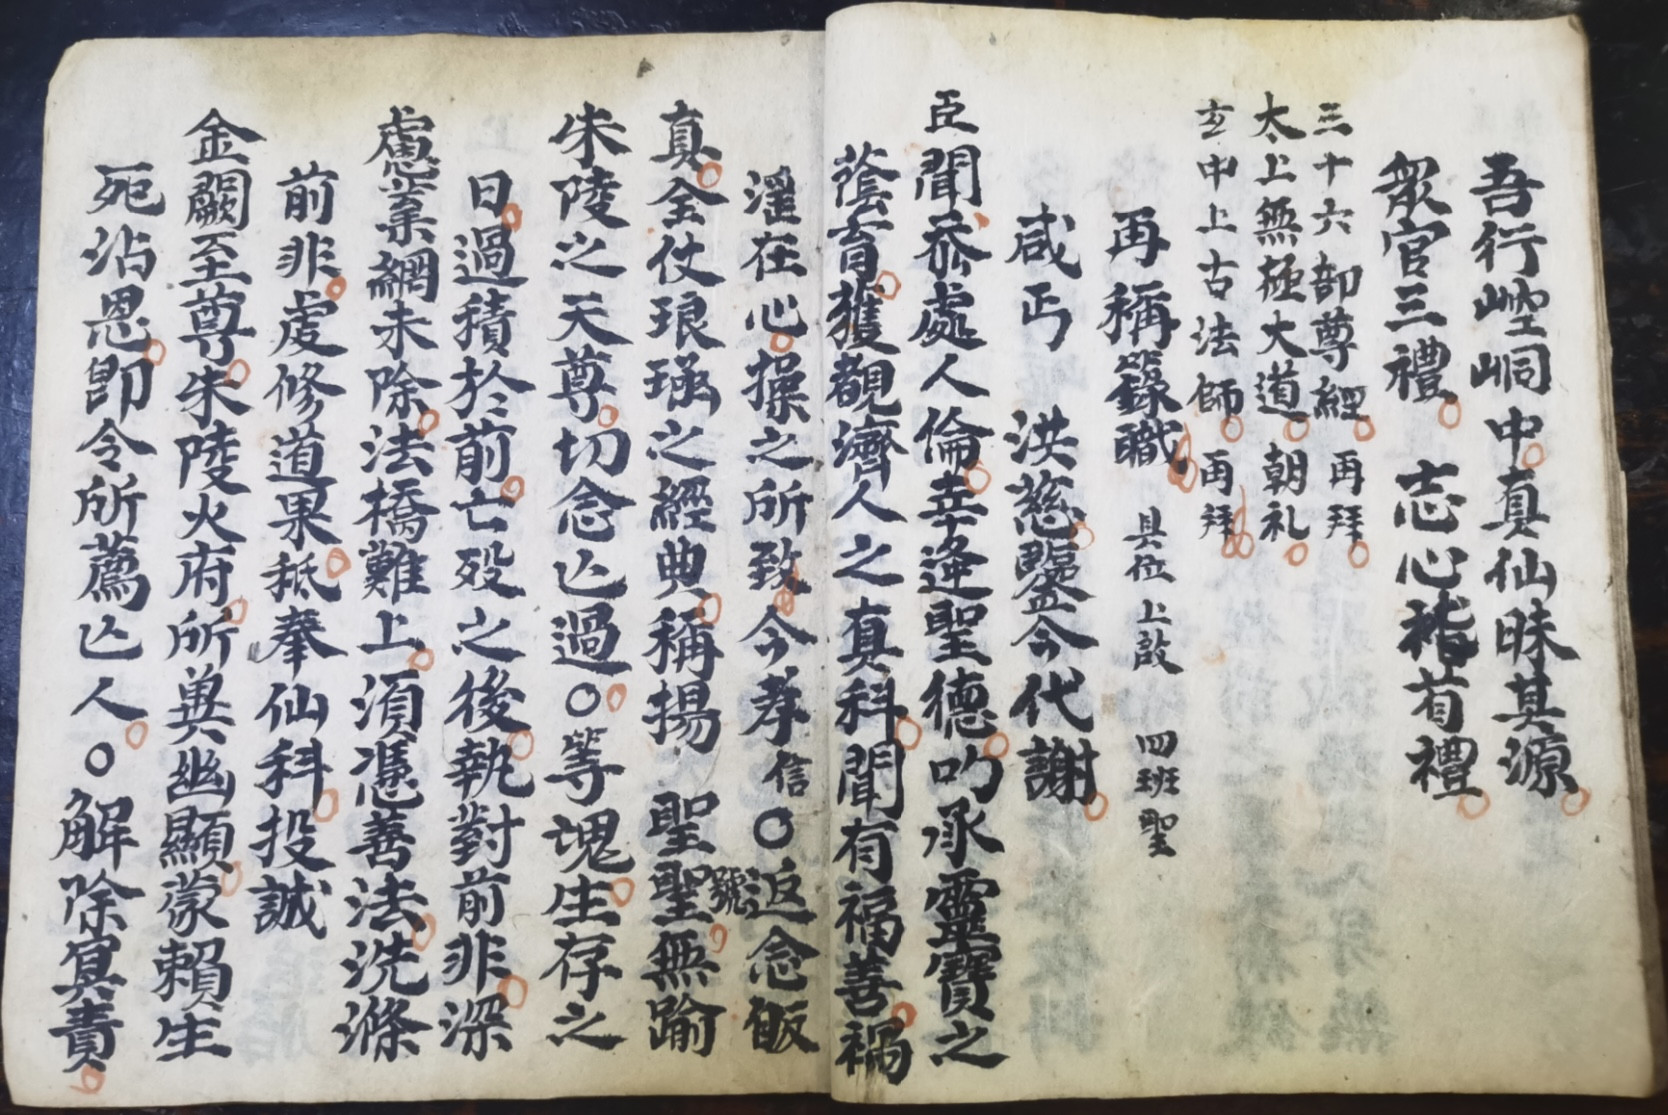 吾行崆峒中真仙昧其源
衆官三禮 志心稽首禮
三十六部尊經 再拜
太上無極大道 朝礼
玄中上古法師 再拜
再稱籙職 具位 上啟 四班聖
咸丐 洪慈鑒今代謝
臣聞忝處人倫幸逢聖德叨承靈寶之
蔭育獲覩濟人之真科聞有福善禍
淫在心操之所致今孝信○返念皈
真全仗琅函之經典稱揚 聖聖號無踰
朱陵之天尊切念亾過○等魂生存之
日過積於前亡殁之後執對前非深
慮業網未除法橋難上須憑善法洗滌
前非虔修道果秪奉仙科投誠
金闕至尊朱陵火府所兾幽顯蒙賴生
死沾恩即令所薦亾人○解除冥責